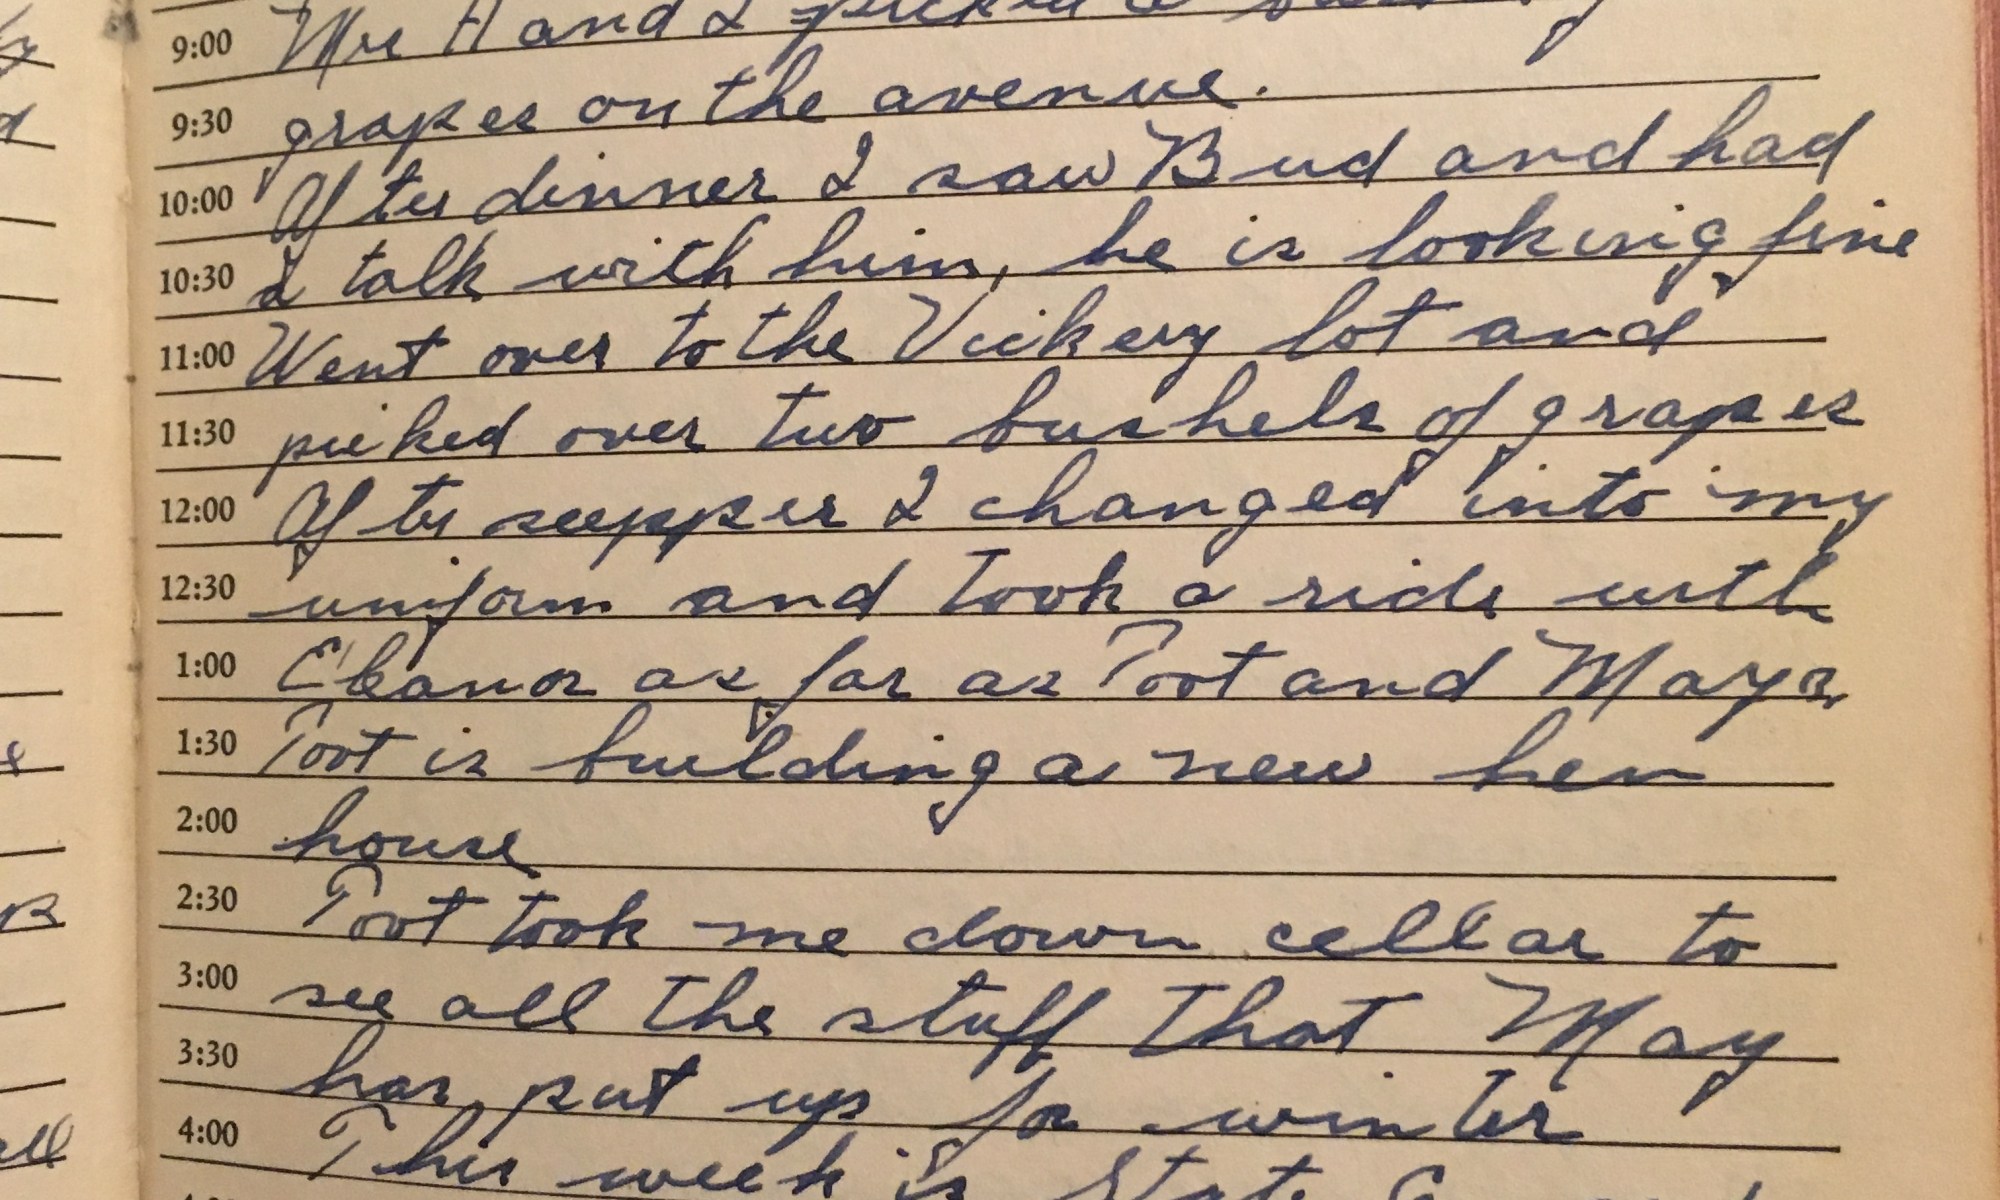 9:00 Mrs H and I picked a
9:30 grapes on the avenue.
10:00 After dinner I saw Bud and had
10:30 a talk with him, he is looking fine
11:00 Went over to the Vickery lot and
11:30 picked over two bushels of grapes
12:00 After supper I changed into my
12:30 uniform and took a ride with
1:00 Eleanor as far as Toot and Mays
1:30 Toot is building a new hen
2:00 house
2:30 Toot took me down cellar to
3:00 see all the stuff that May
3:30 has put up for winter
4:00 This week is State